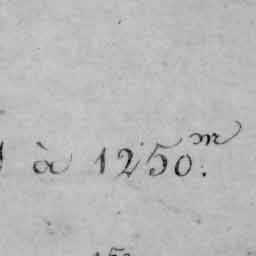 à 1250.m